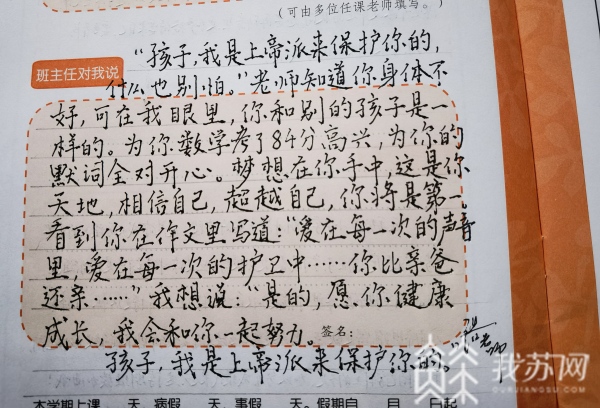 (可由多位任课老师填写。)
"孩子,我是上帝派来保护你的,
班主任对我说
什么也别怕。"老师知道你身体不
好,可在我眼里,你和别的孩子是一
样的。为你数学考了84分高兴,为你的
默词全对开心。梦想在你手中,这是你
天地,相信自己,超越自己,你将是第一。
看到你在作文里写道:"爱在每一次的声音
里,爱在每一次的护卫中……你比亲爸
还亲……"我想说:"是的,愿你健康
成长,我会和你一起努力。 签名:
孩子,我是上帝派来保护你的。"
老师
我苏网
OURJIANGSU.COM
本学期上课 天 病假 天、事假 天。假期自 月 日起